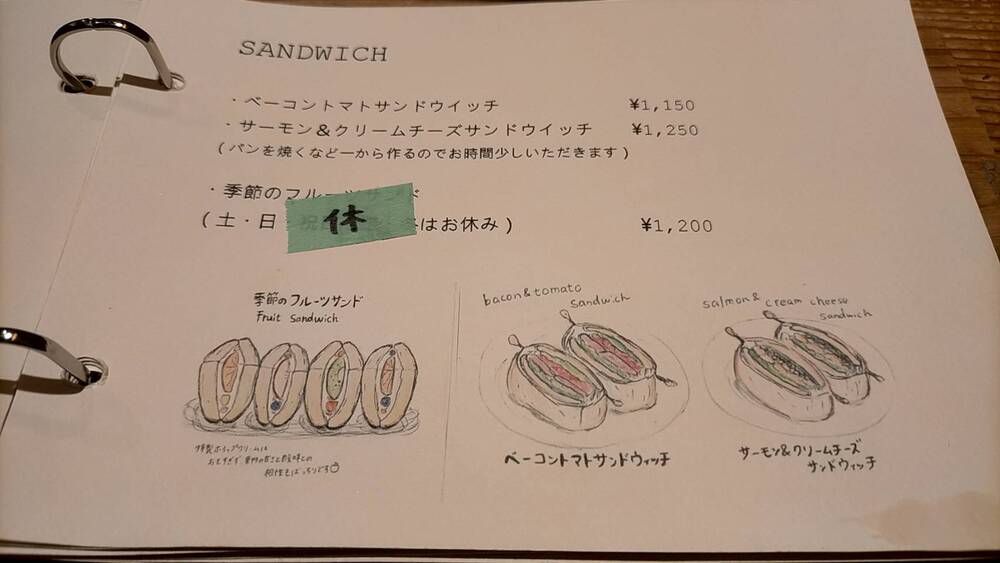 SANDWICH
・ベーコントマトサンドウイッチ ¥1,150
・サーモン＆クリームチーズサンドウイッチ ¥1,250
(パンを焼くなど一から作るのでお時間少しいただきます)
・季節のフルーツサンド
(土・日 休 はお休み) ¥1,200
季節のフルーツサンド
Fruit Sandwich
bacon & tomato
sandwich
salmon & cream cheese
sandwich
特製ホイップクリームは
相性もばっちりです
ベーコントマトサンドウィッチ
サーモン&クリームチーズ
サンドウィッチ